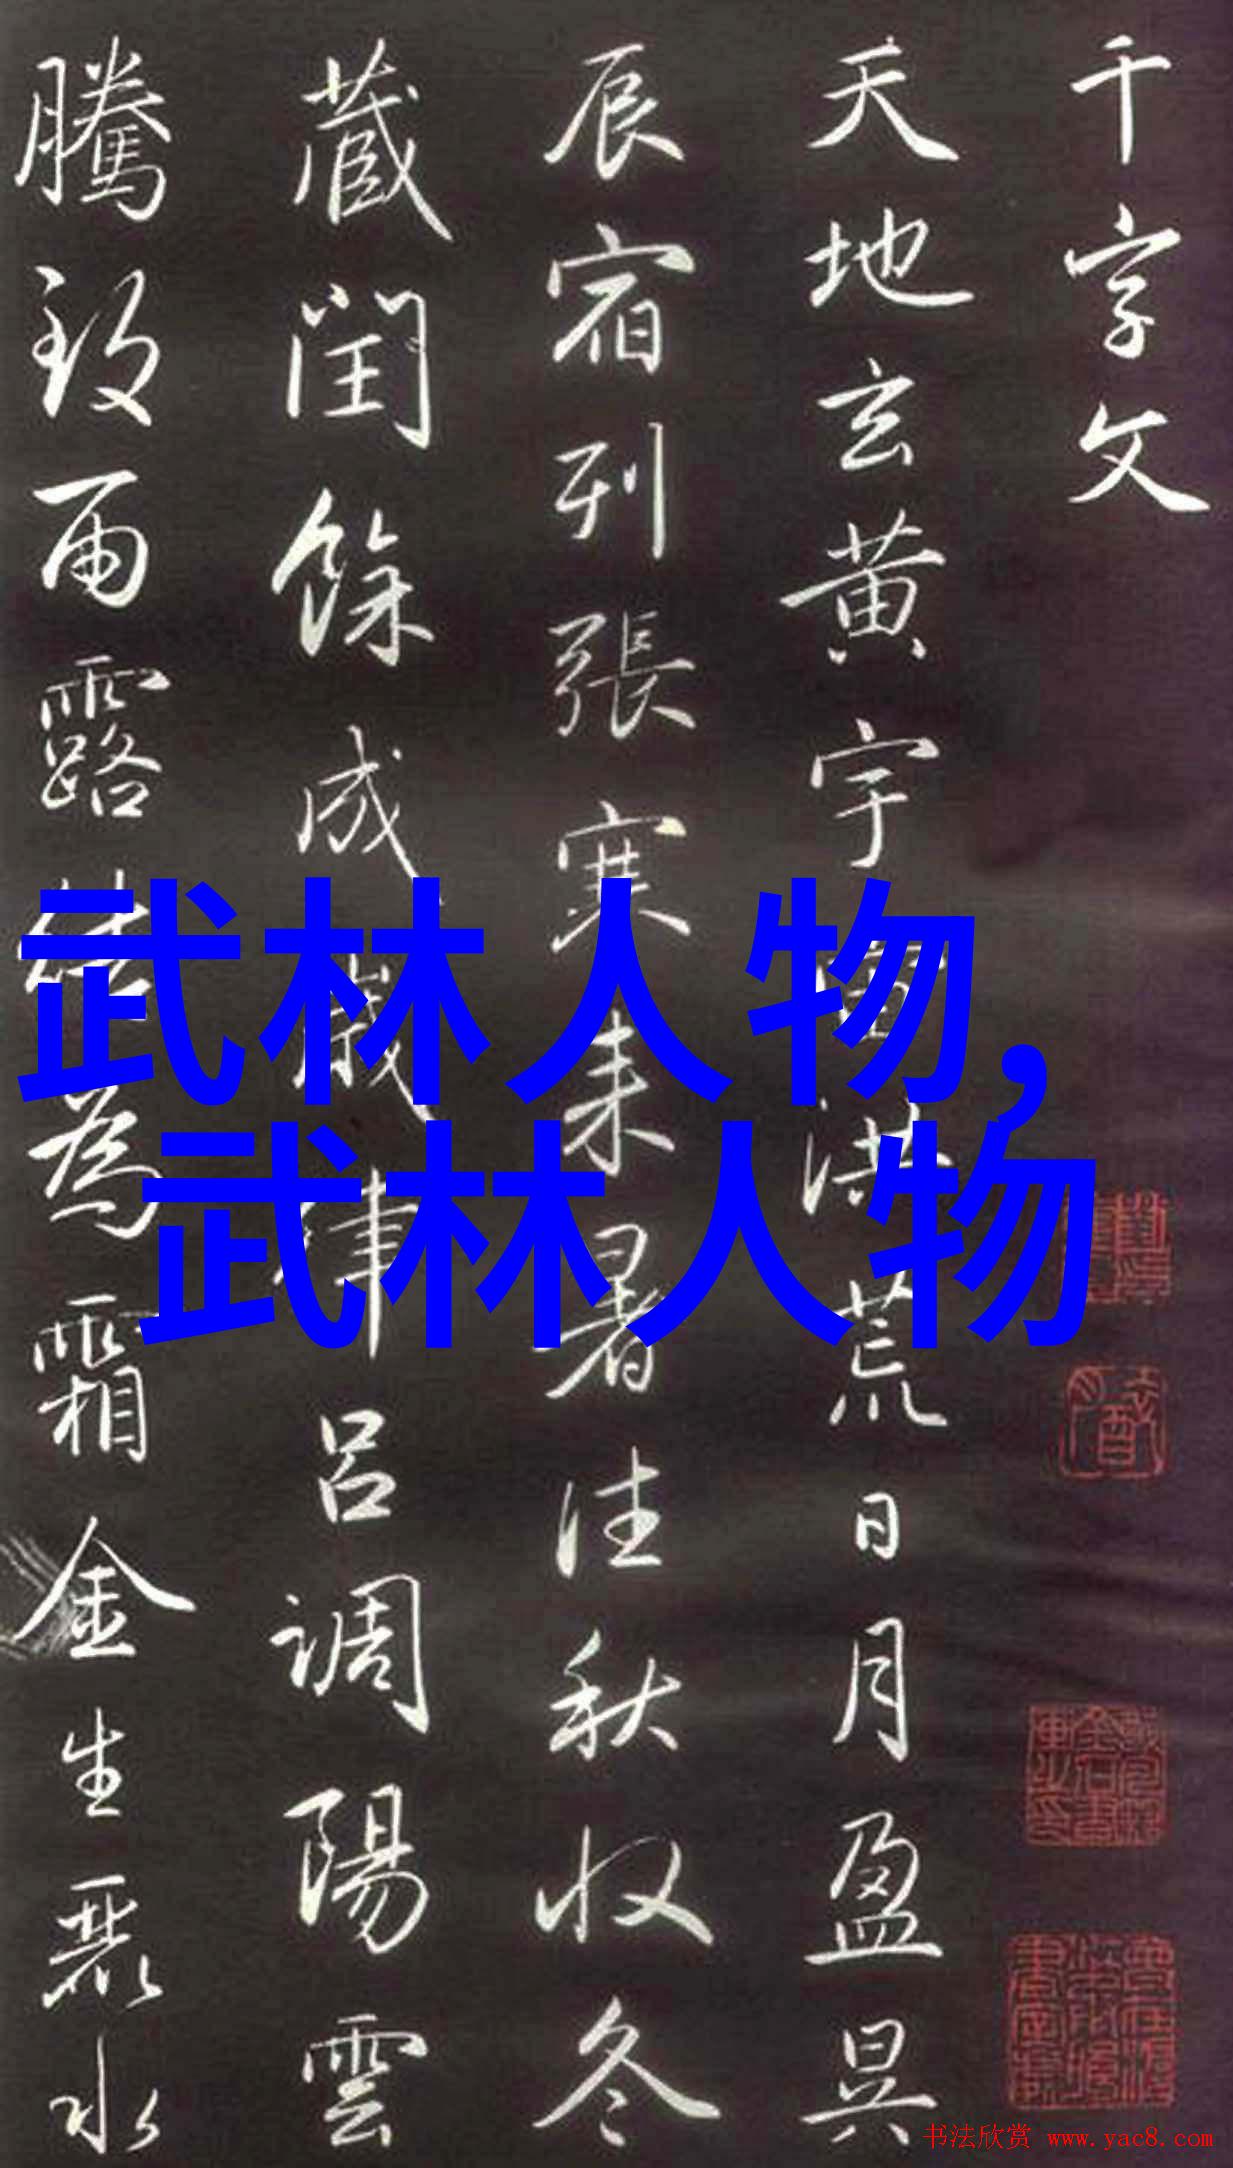 千字文
天地玄黄宇宙洪荒日月盈昃
辰宿列張寒来暑往秋收冬
藏閏餘成歲律呂調陽雲
騰致雨露結為霜金生麗水
武林人物,
武林人物
书法欣赏 www.yac8.com